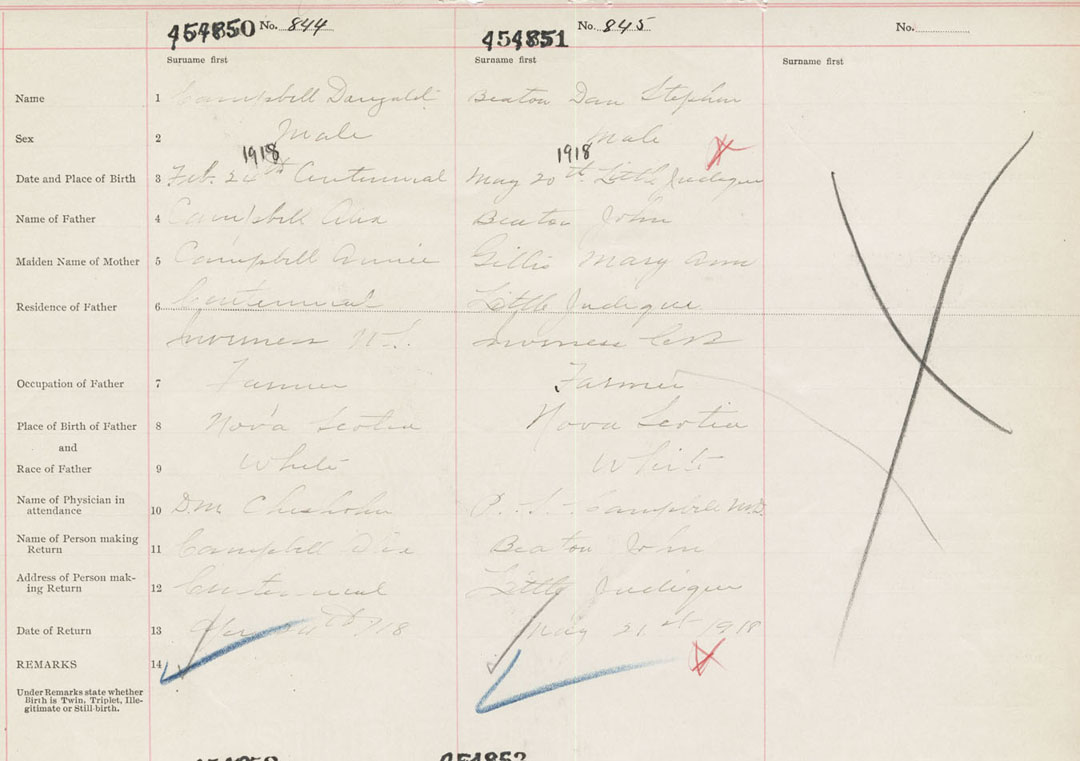 454850 No. 844
454851 No. 845
No.
Surname first
Surname first
Surname first
Name 1 Campbell Dougald Beaton Dan Stephen
Sex 2 Male Male
1918 1918
Date and Place of Birth 3 Feb. Centennial May 20th Little Judique
Name of Father 4 Campbell Beaton John
Maiden Name of Mother 5 Campbell Annie Gillis Mary Ann
Residence of Father 6 Centennial Little Judique
Inverness N.S. Inverness
Occupation of Father 7 Farmer Farmer
Place of Birth of Father 8 Nova Scotia Nova Scotia
and
Race of Father 9 White White
Name of Physician in
attendance 10 Chisholm Campbell M.D.
Name of Person making
Return 11 Campbell Beaton John
Address of Person mak-
ing Return 12 Centennial Little Judique
Date of Return 13 May 21st 1918
REMARKS 14
Under Remarks state whether
Birth is Twin, Triplet, Ille-
gitimate or Still-birth.